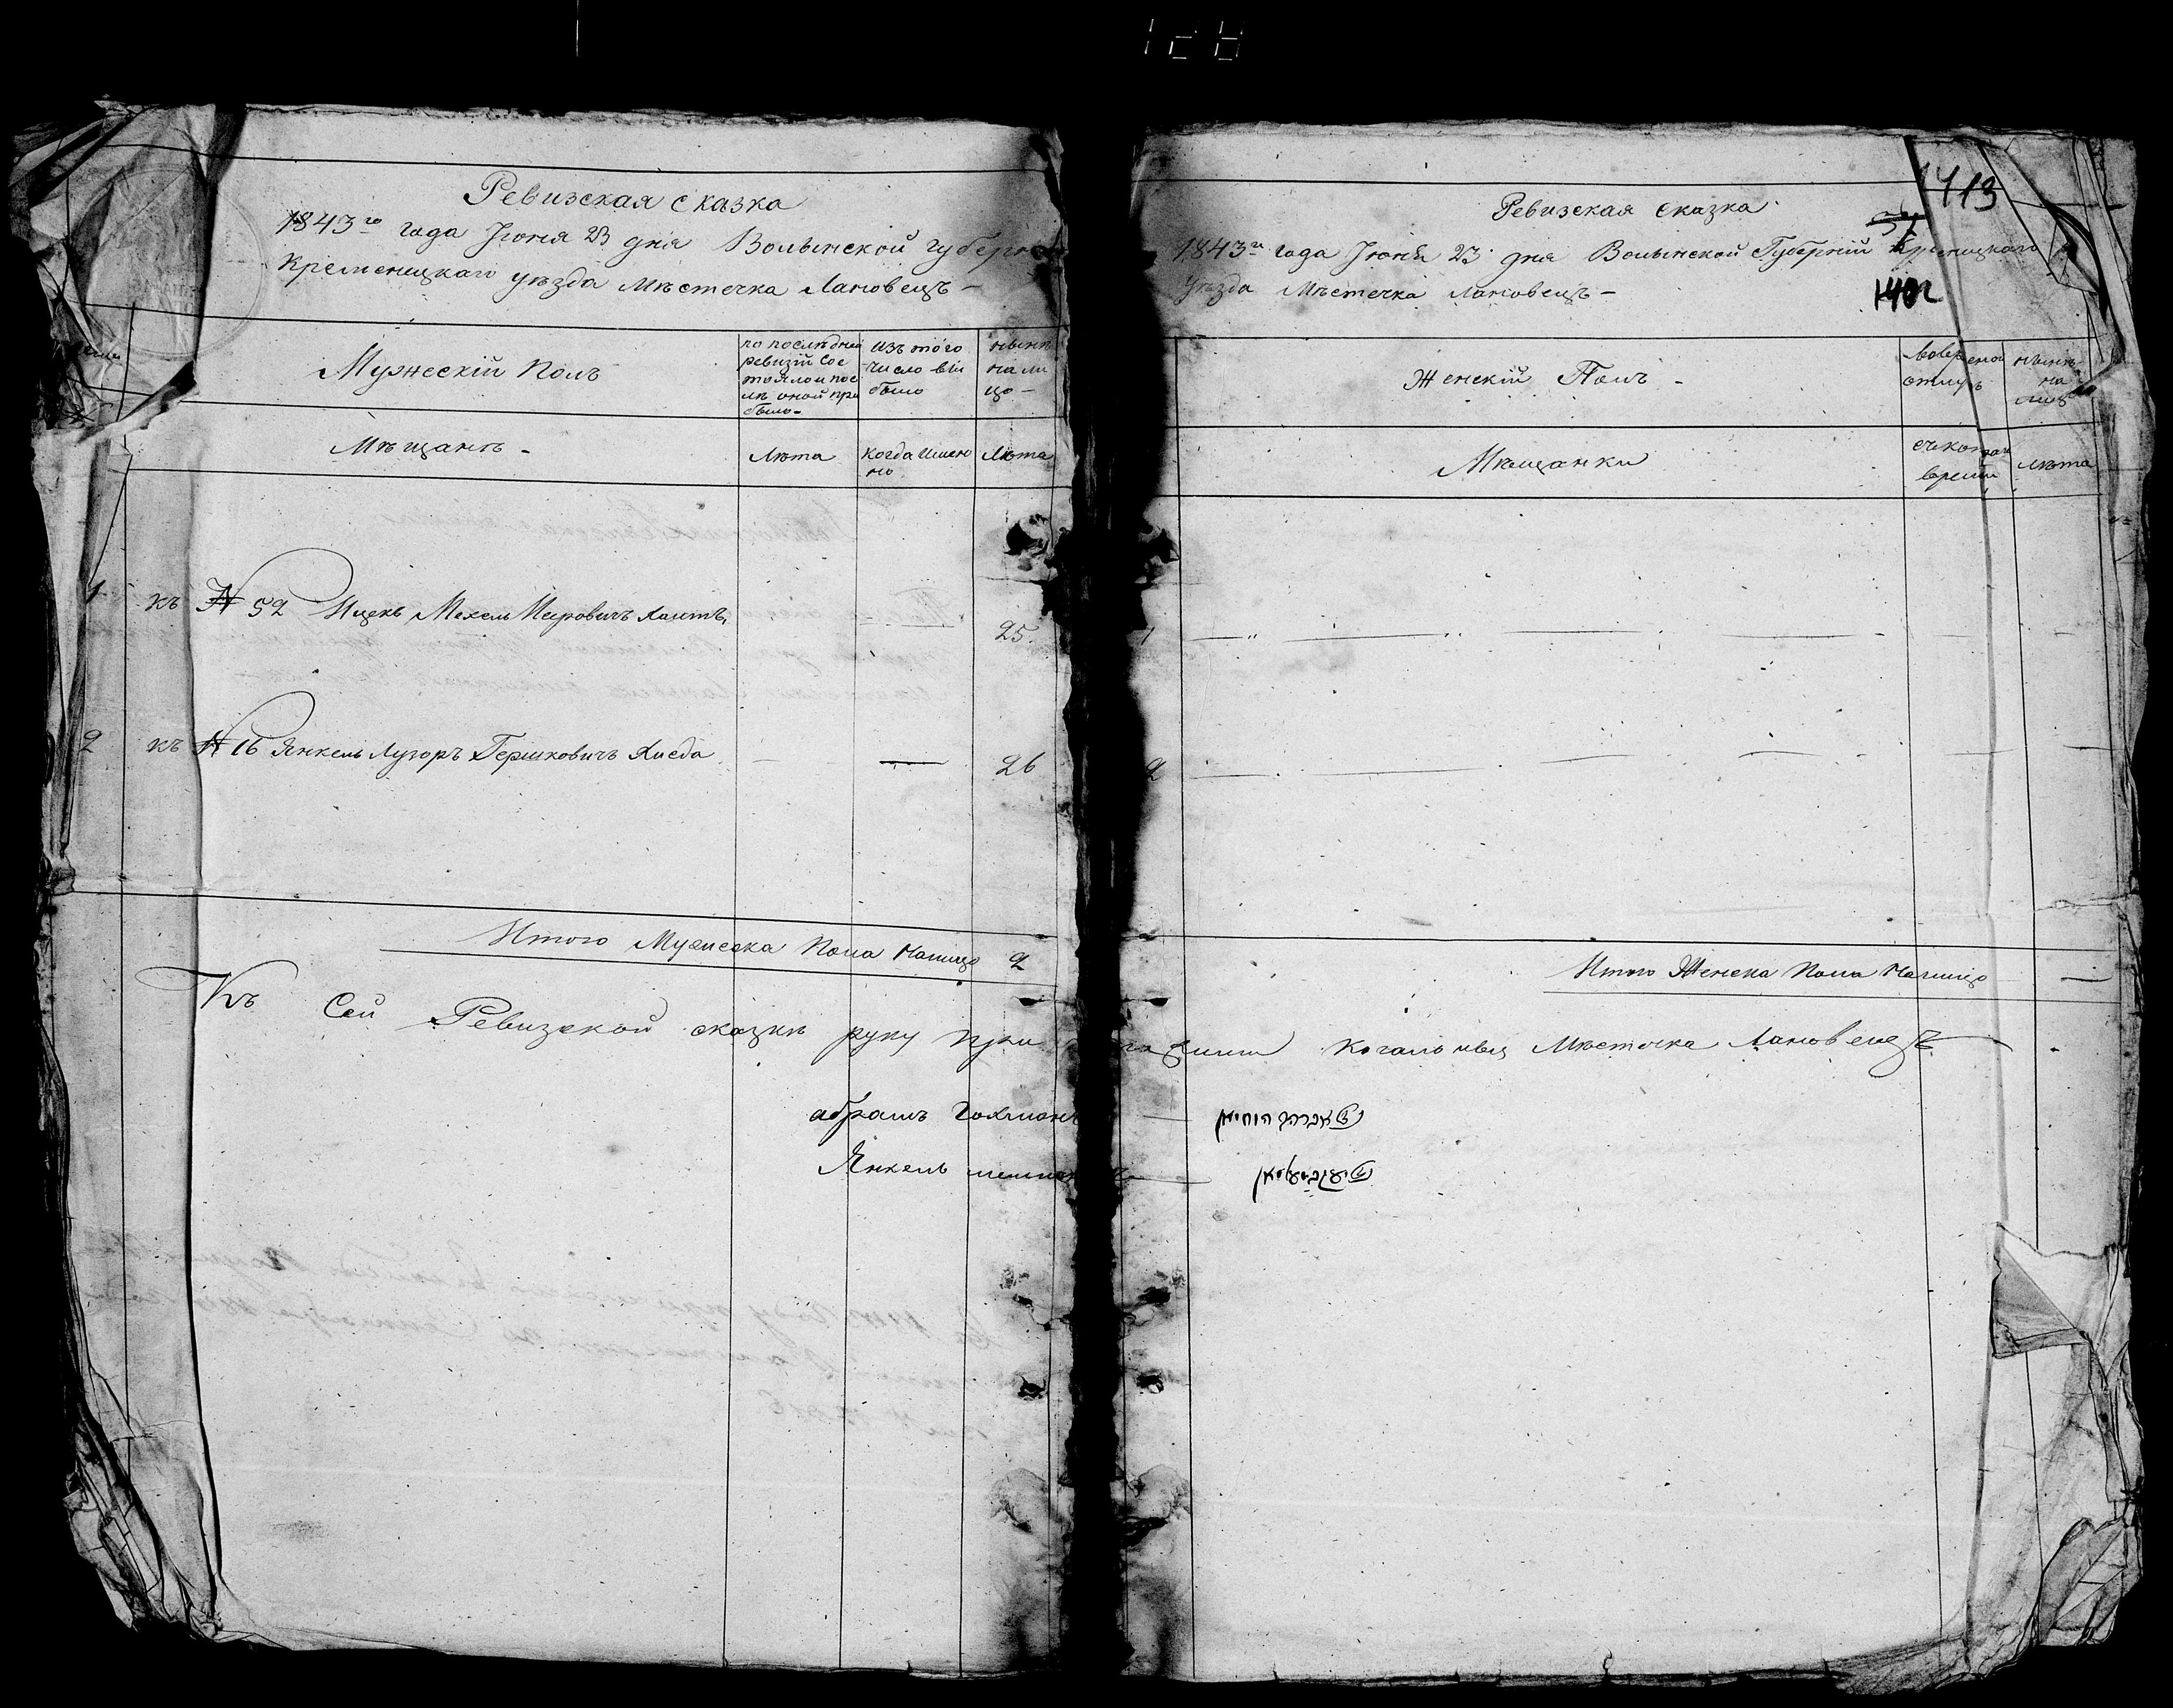 Ревизская сказка
1843го года Июня 23 дня Волынской губерн
Кременецкаго уезда Мѣстечка Лановецъ –
Мужескій Полъ
по послѣдней
ревизіи сос
тояло и пос
лѣ оной при
было –
изъ того
число вы
было
нынѣ
на ли
цо –
Мѣщанъ –
Лѣта
когда имен
но
Лѣта
1 къ № 52 Ицекъ Мехель Мееровичъ 25
2 къ № 16 Янкель Лузоръ Гершковичъ 26
Итого Мужеска Пола Налицо 2
Ревизская сказка
1843го года Июня 23 дня Волынской Губерніи Кременицкаго
Уѣзда Мѣстечка Лановецъ –
413
1402
Женскій Полъ –
нынѣ
на
лицо
Мѣщанки
лѣта
1
2
Итого Женска Пола Налицо —
Къ Сей Ревизской сказкѣ руку при Кагальныя Мѣстечка Лановецъ
абрамъ
Янкель